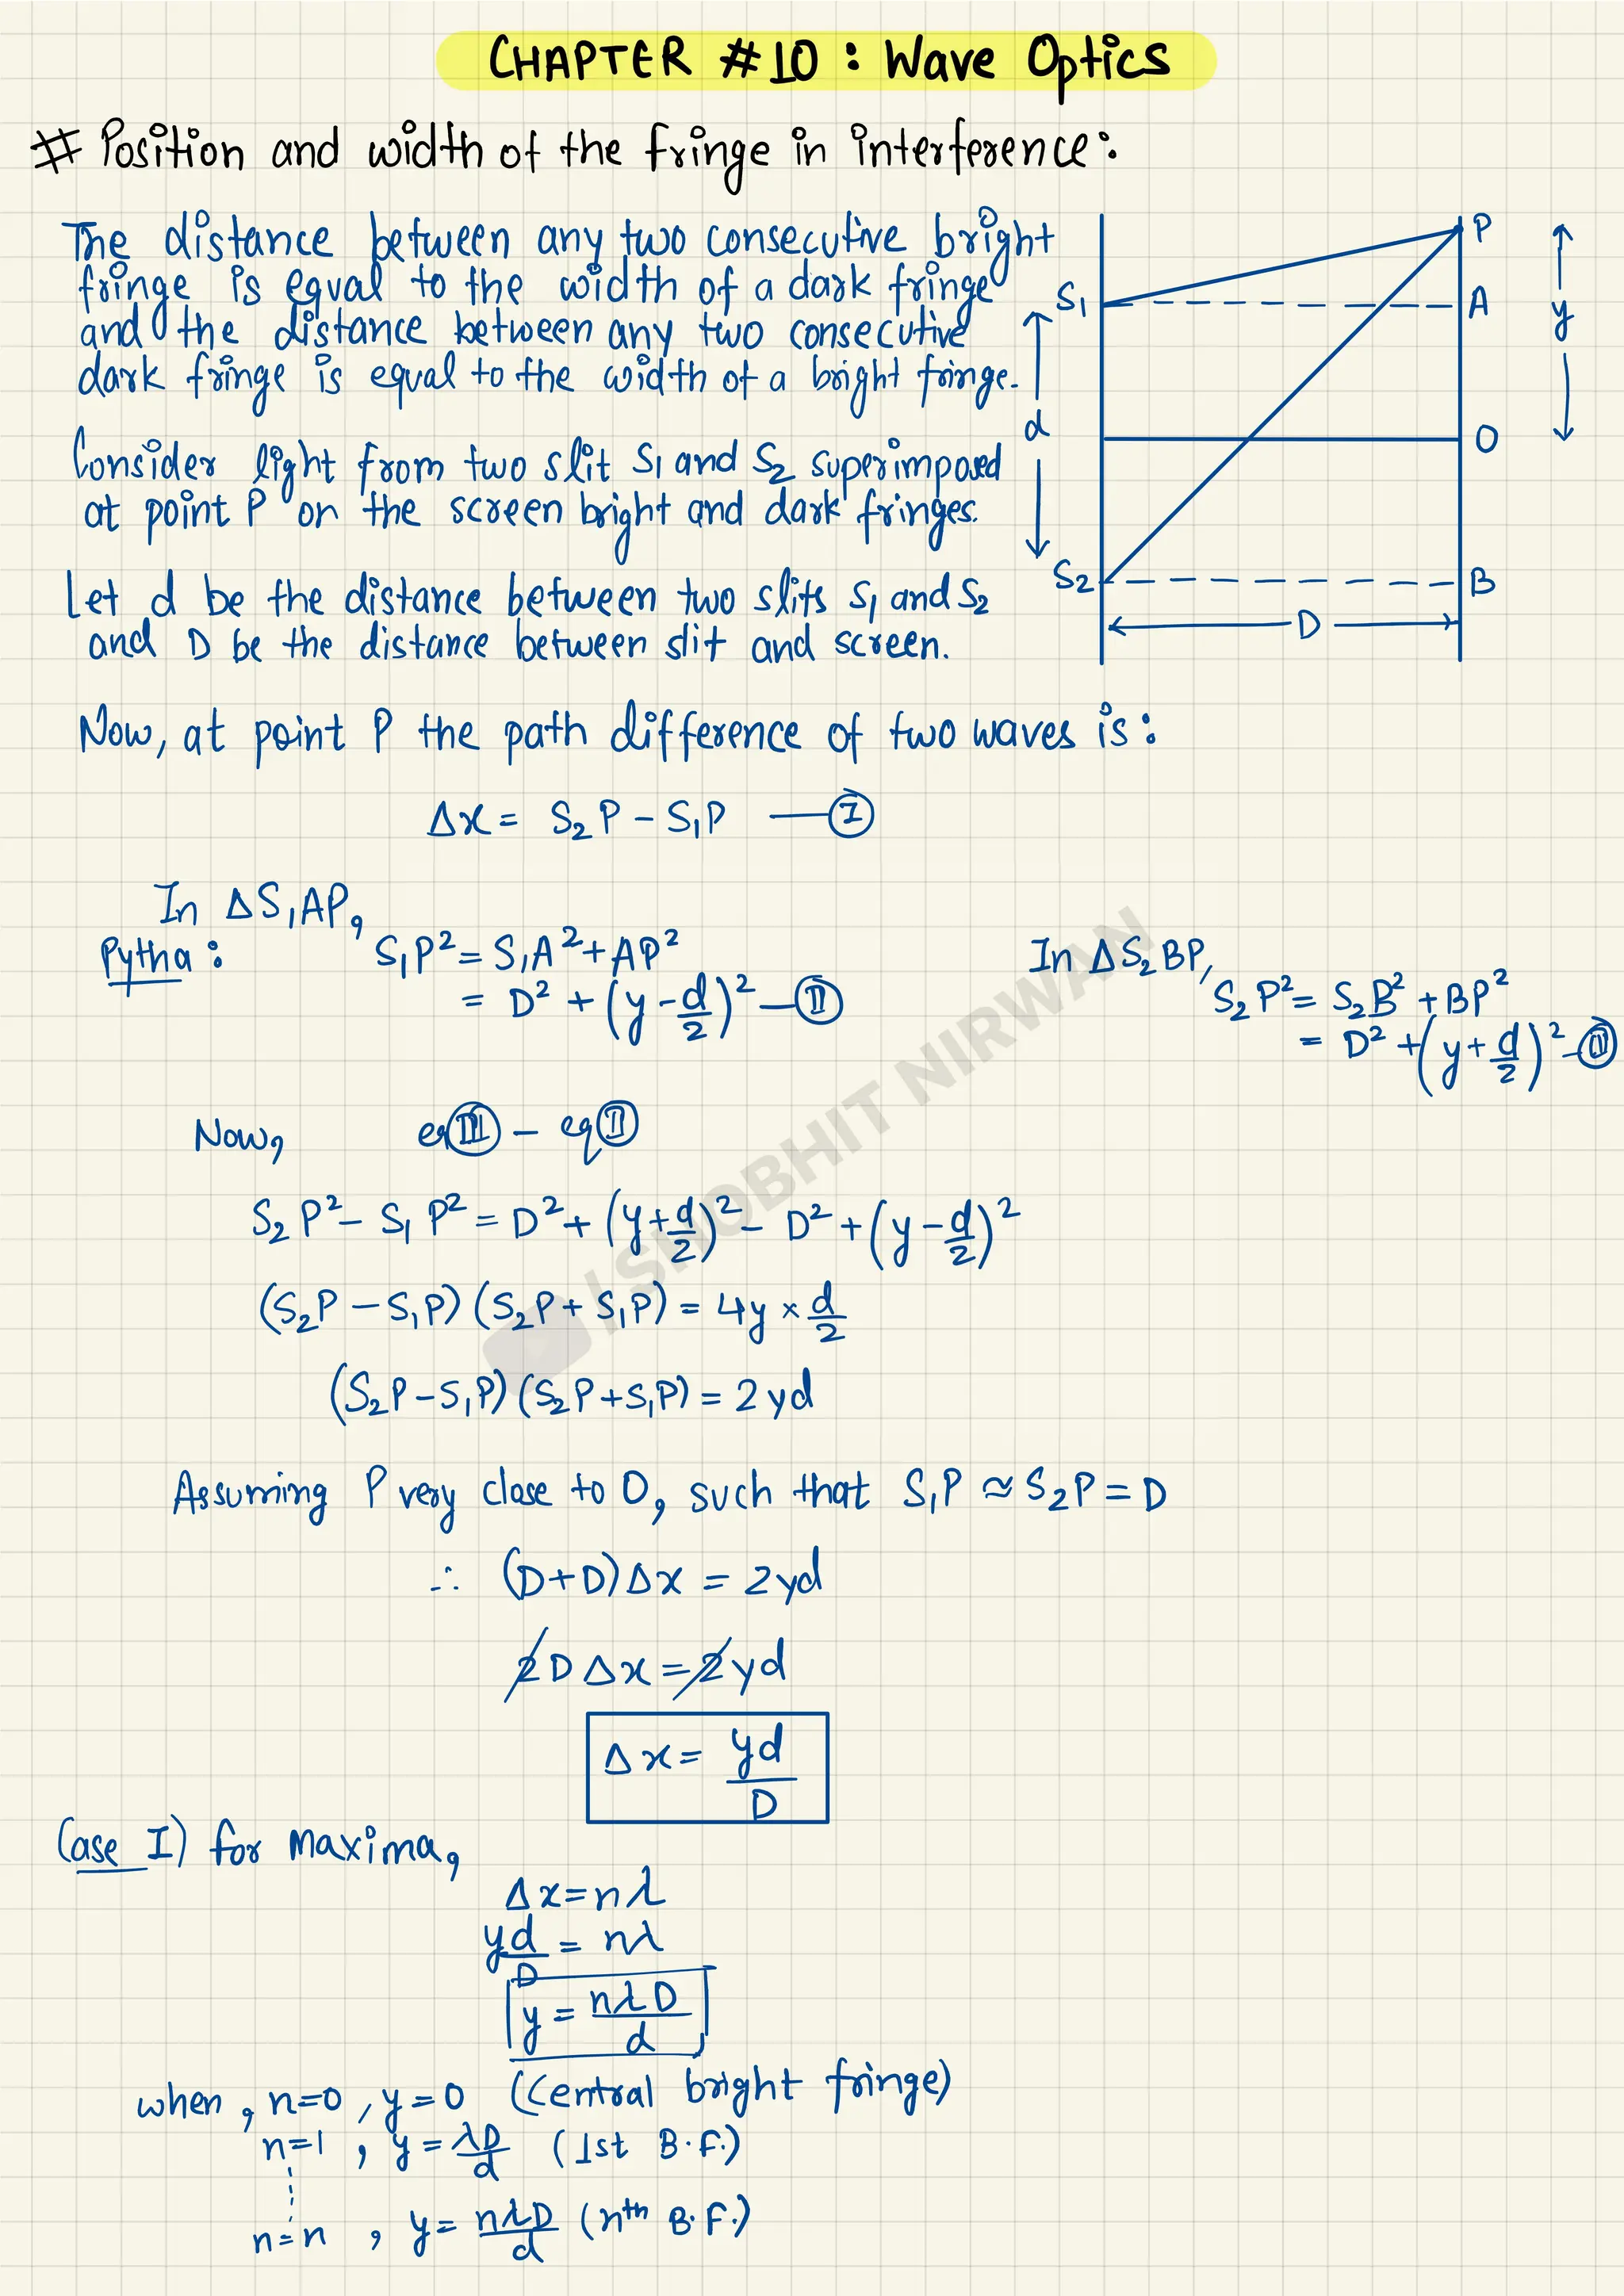 CHAPTER #10 : Wave Optics
# Position and width of the fringe in interference:
The distance between any two consecutive bright
fringe is equal to the width of a dark fringe
and the distance between any two consecutive
dark fringe is equal to the width of a bright fringe.
Consider light from two slit S₁ and S₂ superimposed
at point P on the screen bright and dark fringes.
Let d be the distance between two slits S₁ and S₂
and D be the distance between slit and screen.
P
S₁
A
y
d
O
S₂
B
D
Now, at point P the path difference of two waves is:
Δx = S₂P - S₁P —(I)
In ΔS₁AP,
Pytha:
S₁P² = S₁A² + AP²
= D² + (y - d/2)² —(II)
In ΔS₂BP,
S₂P² = S₂B² + BP²
= D² + (y + d/2)² —(III)
Now, eq(III) - eq(II)
S₂P² - S₁P² = D² + (y + d/2)² - D² + (y - d/2)²
(S₂P - S₁P) (S₂P + S₁P) = 4y × d/2
(S₂P - S₁P) (S₂P + S₁P) = 2yd
Assuming P very close to O, such that S₁P ≈ S₂P = D
∴ (D+D)Δx = 2yd
2DΔx = 2yd
Δx = yd/D
Case I) for maxima,
Δx = nλ
yd/D = nλ
y = nλD/d
when, n=0, y=0 (Central bright fringe)
n=1, y = λD/d (1st B.F.)
n=n, y = nλD/d (nᵗʰ B.F.)
/ SHOBHIT NIRWAN